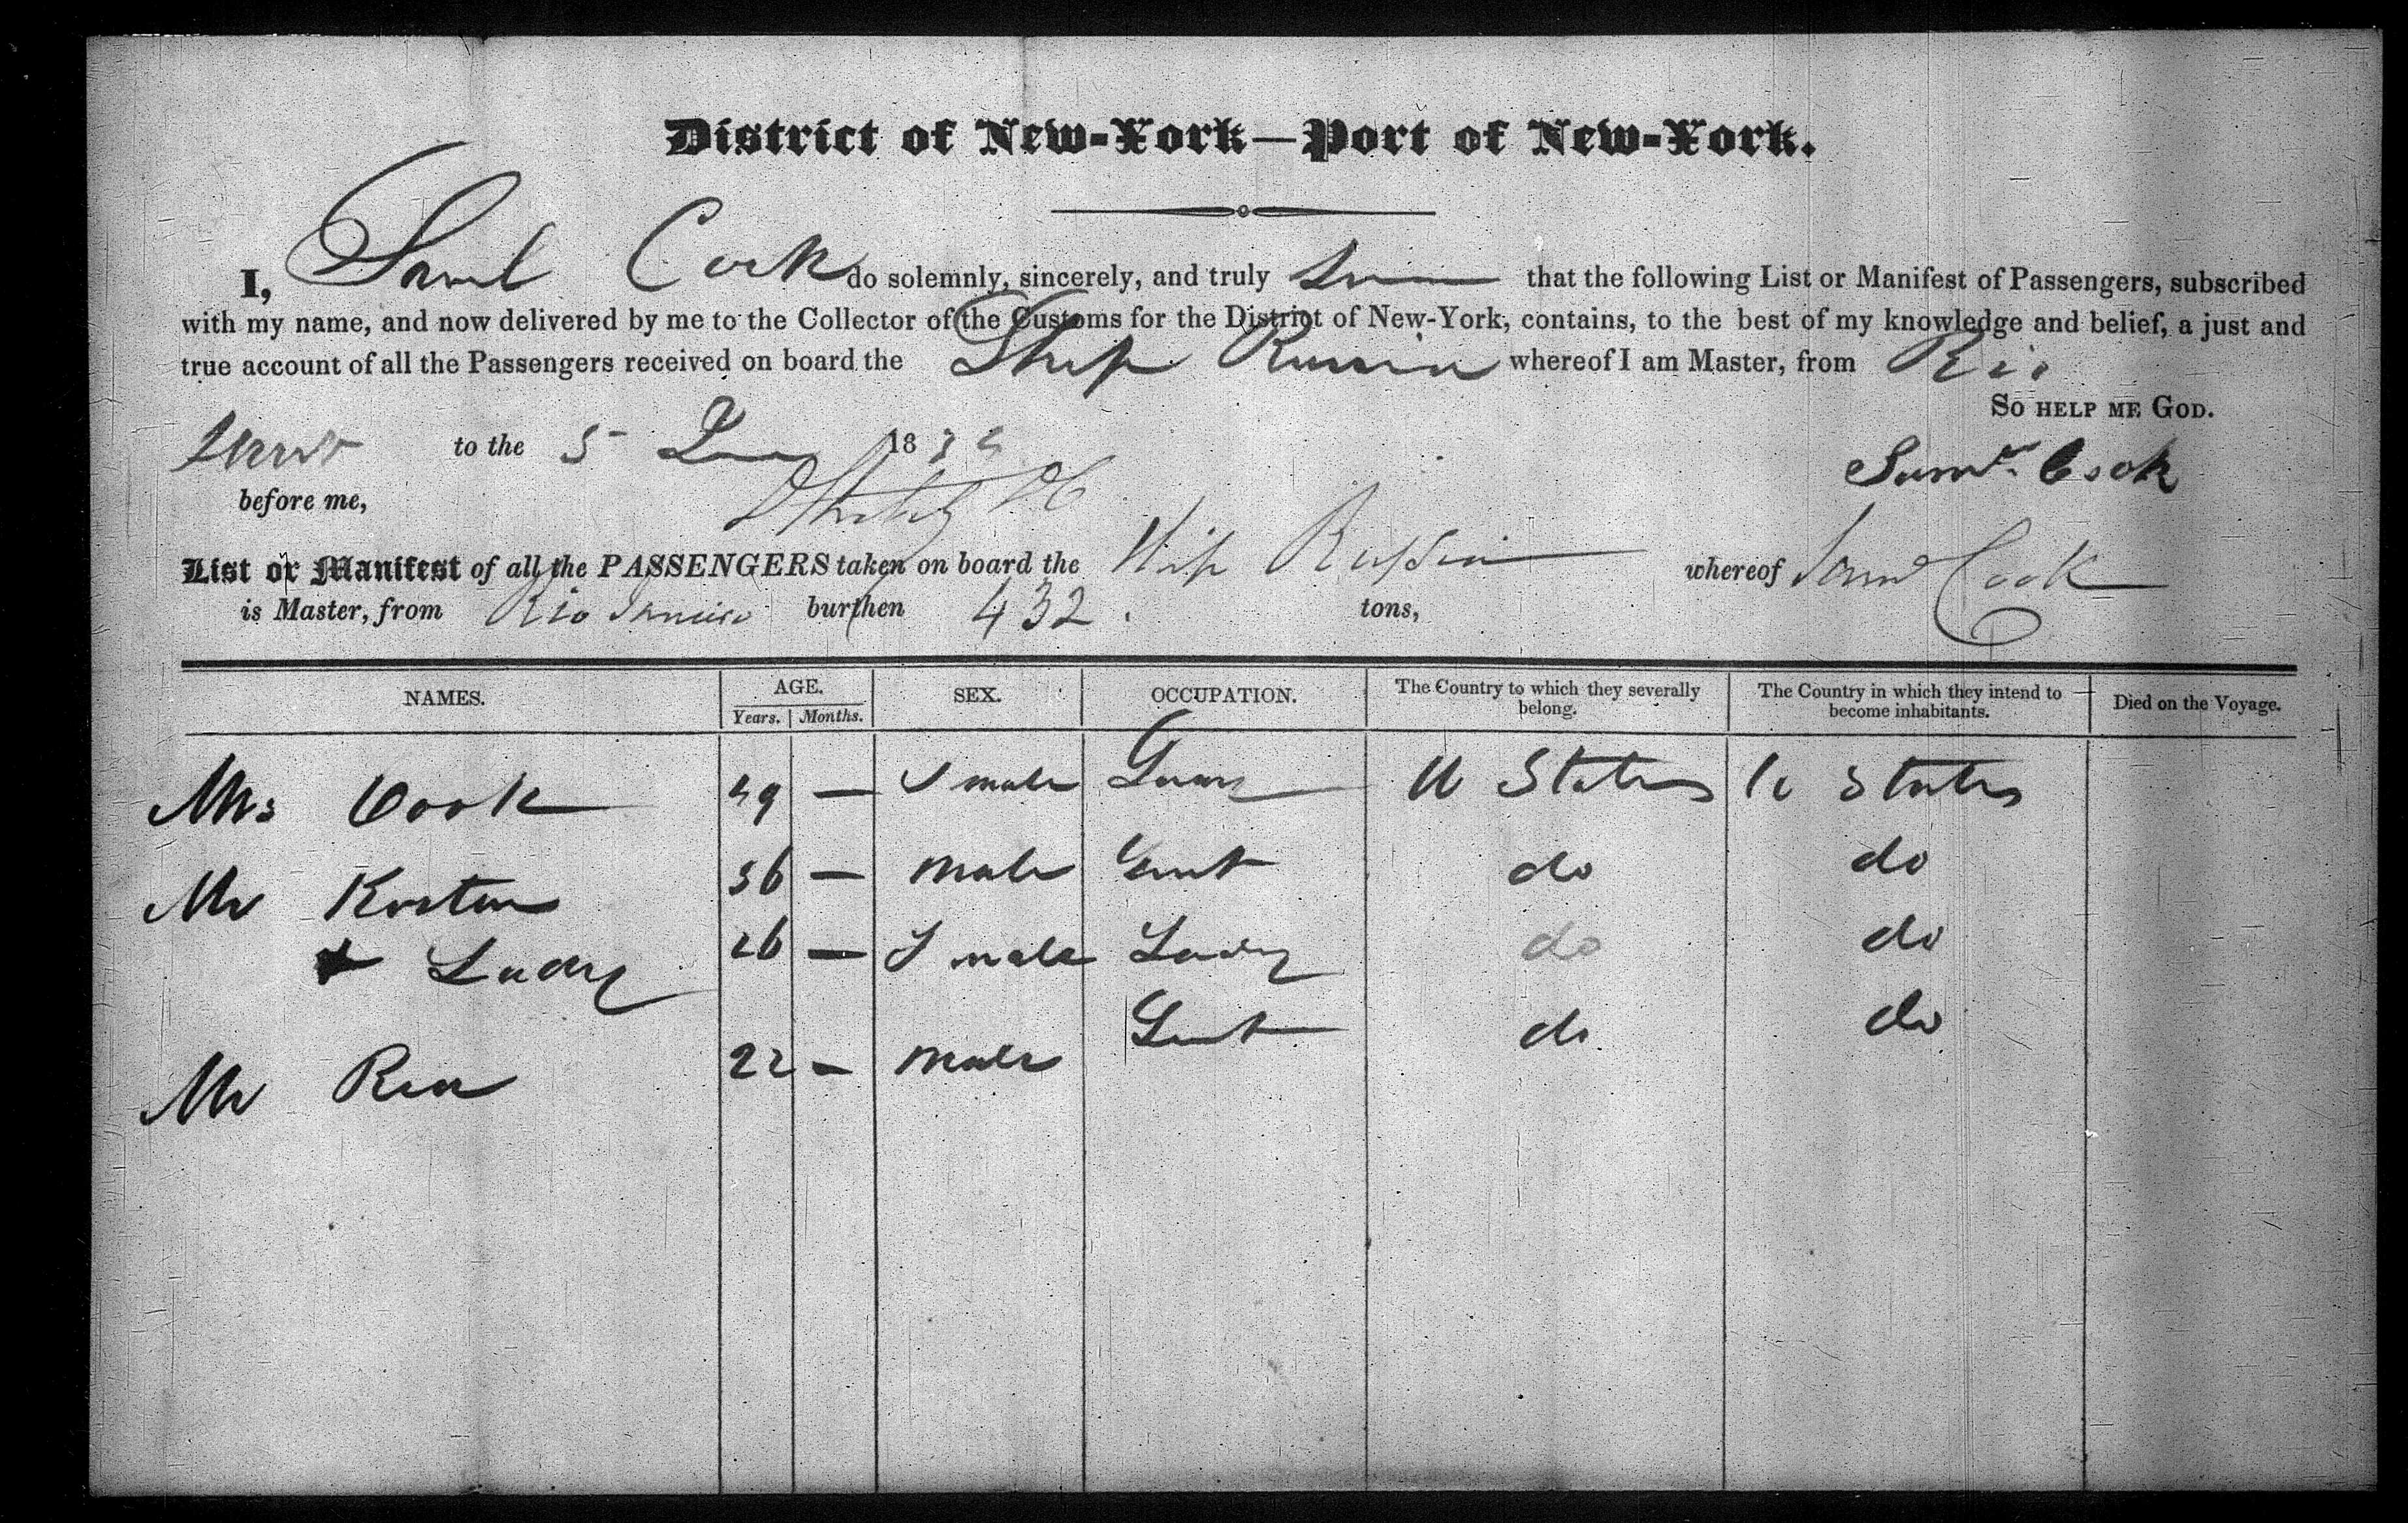 District of New-York—Port of New-York.
I, Saml Cook do solemnly, sincerely, and truly that the following List or Manifest of Passengers, subscribed
with my name, and now delivered by me to the Collector of the Customs for the District of New-York, contains, to the best of my knowledge and belief, a just and
true account of all the Passengers received on board the Ship Russia whereof I am Master, from Rio
So help me God.
to the 5 183
Saml Cook
before me,
List or Manifest of all the PASSENGERS taken on board the Ship Russia whereof Saml Cook
is Master, from Rio Janeiro burthen 432 tons,
NAMES. AGE. SEX. OCCUPATION. The Country to which they severally belong. The Country in which they intend to become inhabitants. Died on the Voyage.
Years. Months.
Mrs Cook — Fmale Lady U States U States
Mr 36 — Male Gent do do
& Lady 26 — Fmale Lady do do
Mr 22 — Male Gent do do